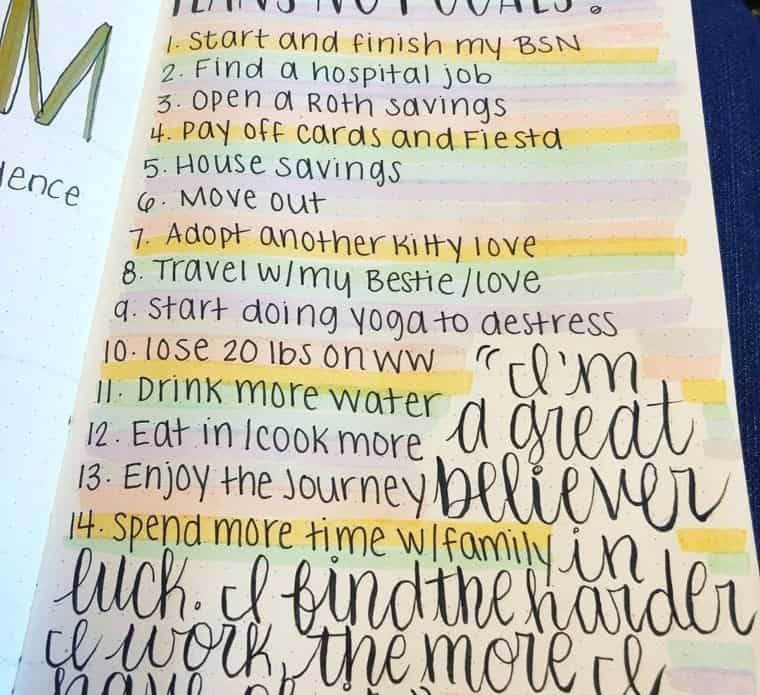 PLANS NOT GOALS:
M
dence
1. Start and finish my BSN
2. Find a hospital job
3. Open a Roth savings
4. Pay off cards and Fiesta
5. House savings
6. Move out
7. Adopt another kitty love
8. Travel w/my Bestie/love
9. Start doing yoga to destress
10. lose 20 lbs on WW
11. Drink more water
12. Eat in/cook more
13. Enjoy the Journey
14. Spend more time w/family
"I'm
a great
believer
in
luck. I find the harder
I work, the more I
have of